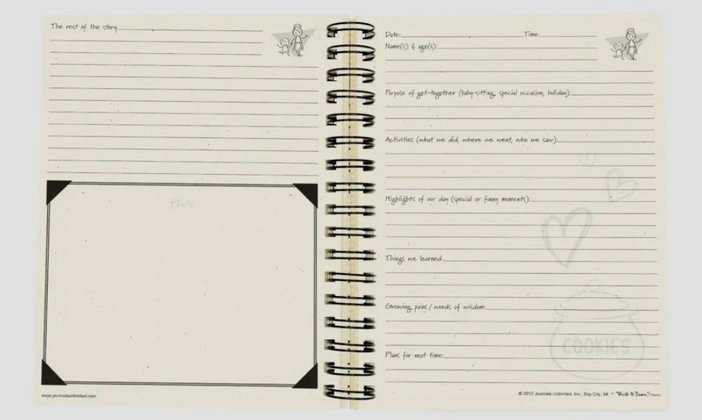 The rest of the story
Photo
www.journalsunlimited.com
Date:
Time:
Name(s) & age(s):
Purpose of get-together (baby-sitting, special occasion, holiday)
Activities (what we did, where we went, who we saw)
Highlights of our day (special or funny moments)
Things we learned
Growing pains / words of wisdom
Plans for next time:
COOKIES
© 2012 Journals Unlimited, Inc., Bay City, MI ~ "Write It Down!"